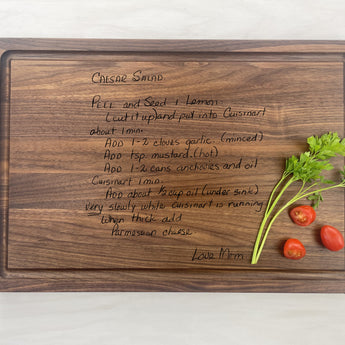 CAESAR SALAD
PEEL and SEED 1 Lemon
(cut it up) and put into Cuisinart
about 1 min.
ADD 1-2 cloves garlic (minced)
ADD tsp mustard (hot)
ADD 1-2 cans anchovies and oil
Cuisinart 1 min.
ADD about ¾ cup oil (under sink)
very slowly while cuisinart is running
when thick add
Parmesean cheese
Love Mom